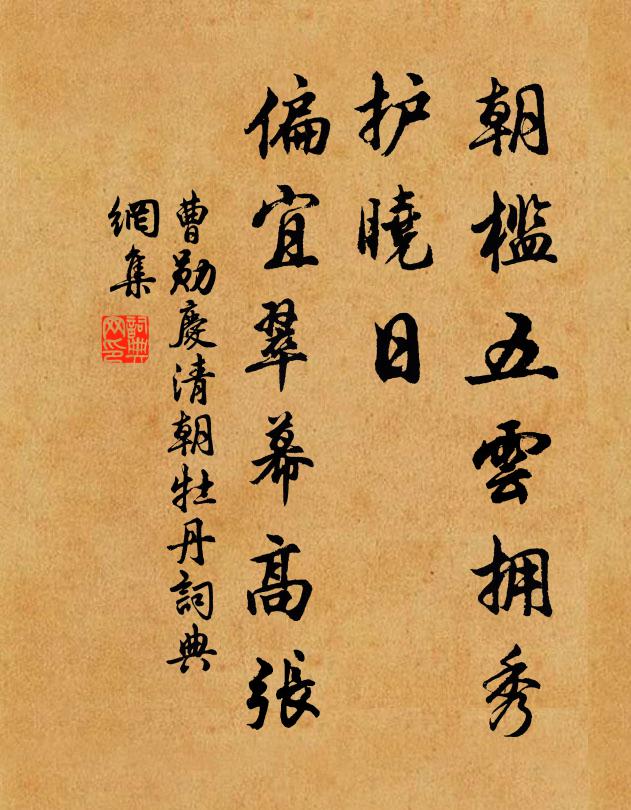 朝槛五雲拥秀
护曉日
偏宜翠幕高張
曹勋慶清朝牡丹詞典
網集
詞典
网印